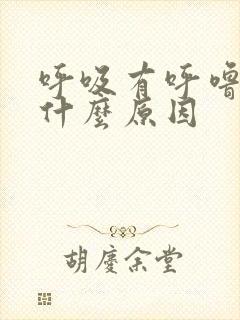 呼吸有呼噜
什麼原因
胡慶余堂